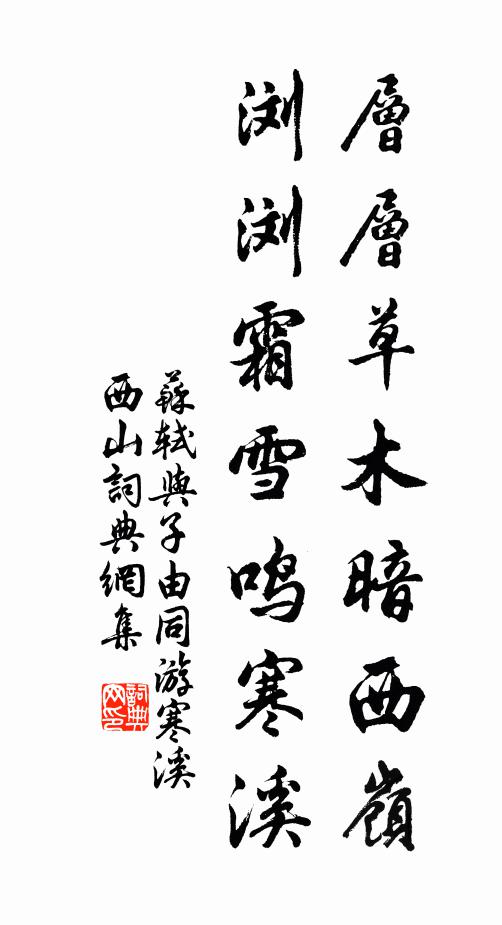 層層草木暗西嶺
浏浏霜雪鸣寒溪
蘇軾與子由同游寒溪
西山詞典網集
詞典网印